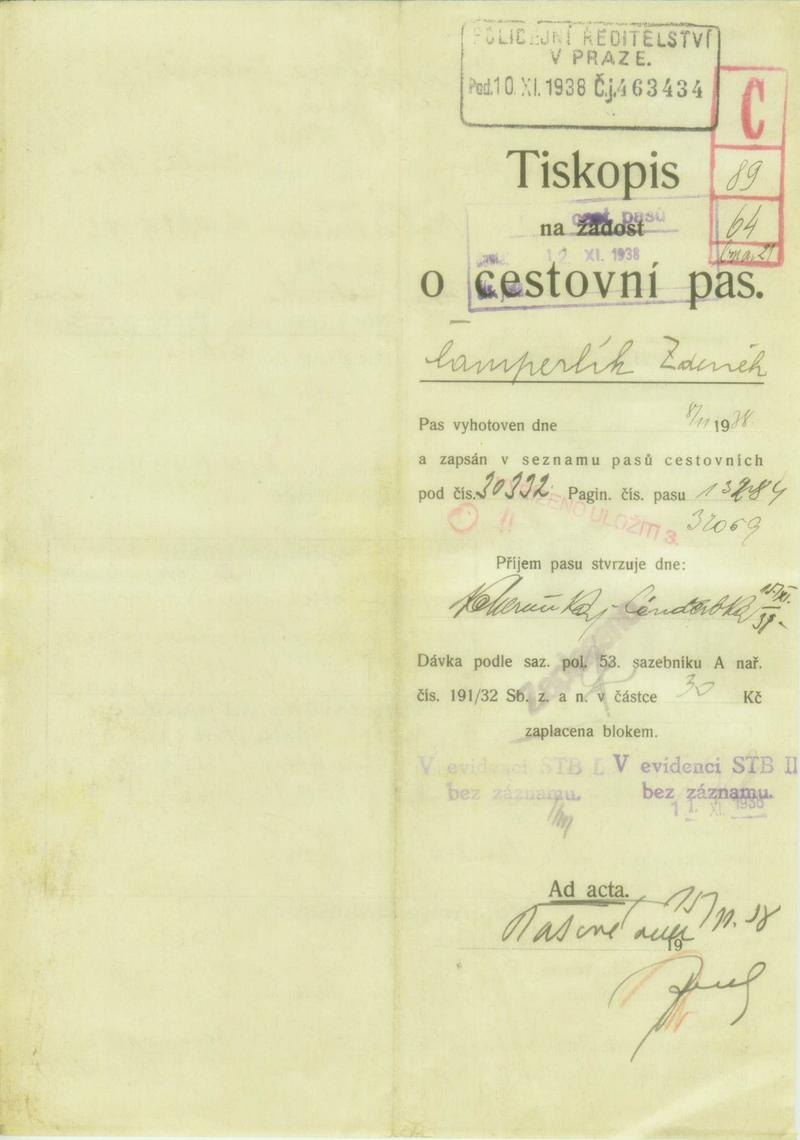 POLICEJNÍ ŘEDITELSTVÍ
V PRAZE.
Pod. 10. XI. 1938 Č.j. 463434
C
89
64
Tiskopis
na žádost
cest. pasů
12 XI. 1938
o cestovní pas.
Čamperlík Zdeněk
Pas vyhotoven dne 8/11 1938
a zapsán v seznamu pasů cestovních
pod čís. 30332 Pagin. čís. pasu 13284
32069
ULOŽITI 3.
Příjem pasu stvrzuje dne:
15/XI.
38.
Dávka podle saz. pol. 53. sazebníku A nař.
čís. 191/32 Sb. z. a n. v částce 30 Kč
zaplacena blokem.
V evidenci STB I. V evidenci STB II
bez záznamu. bez záznamu.
11. XI. 1938
Ad acta.
15/11. 38
19